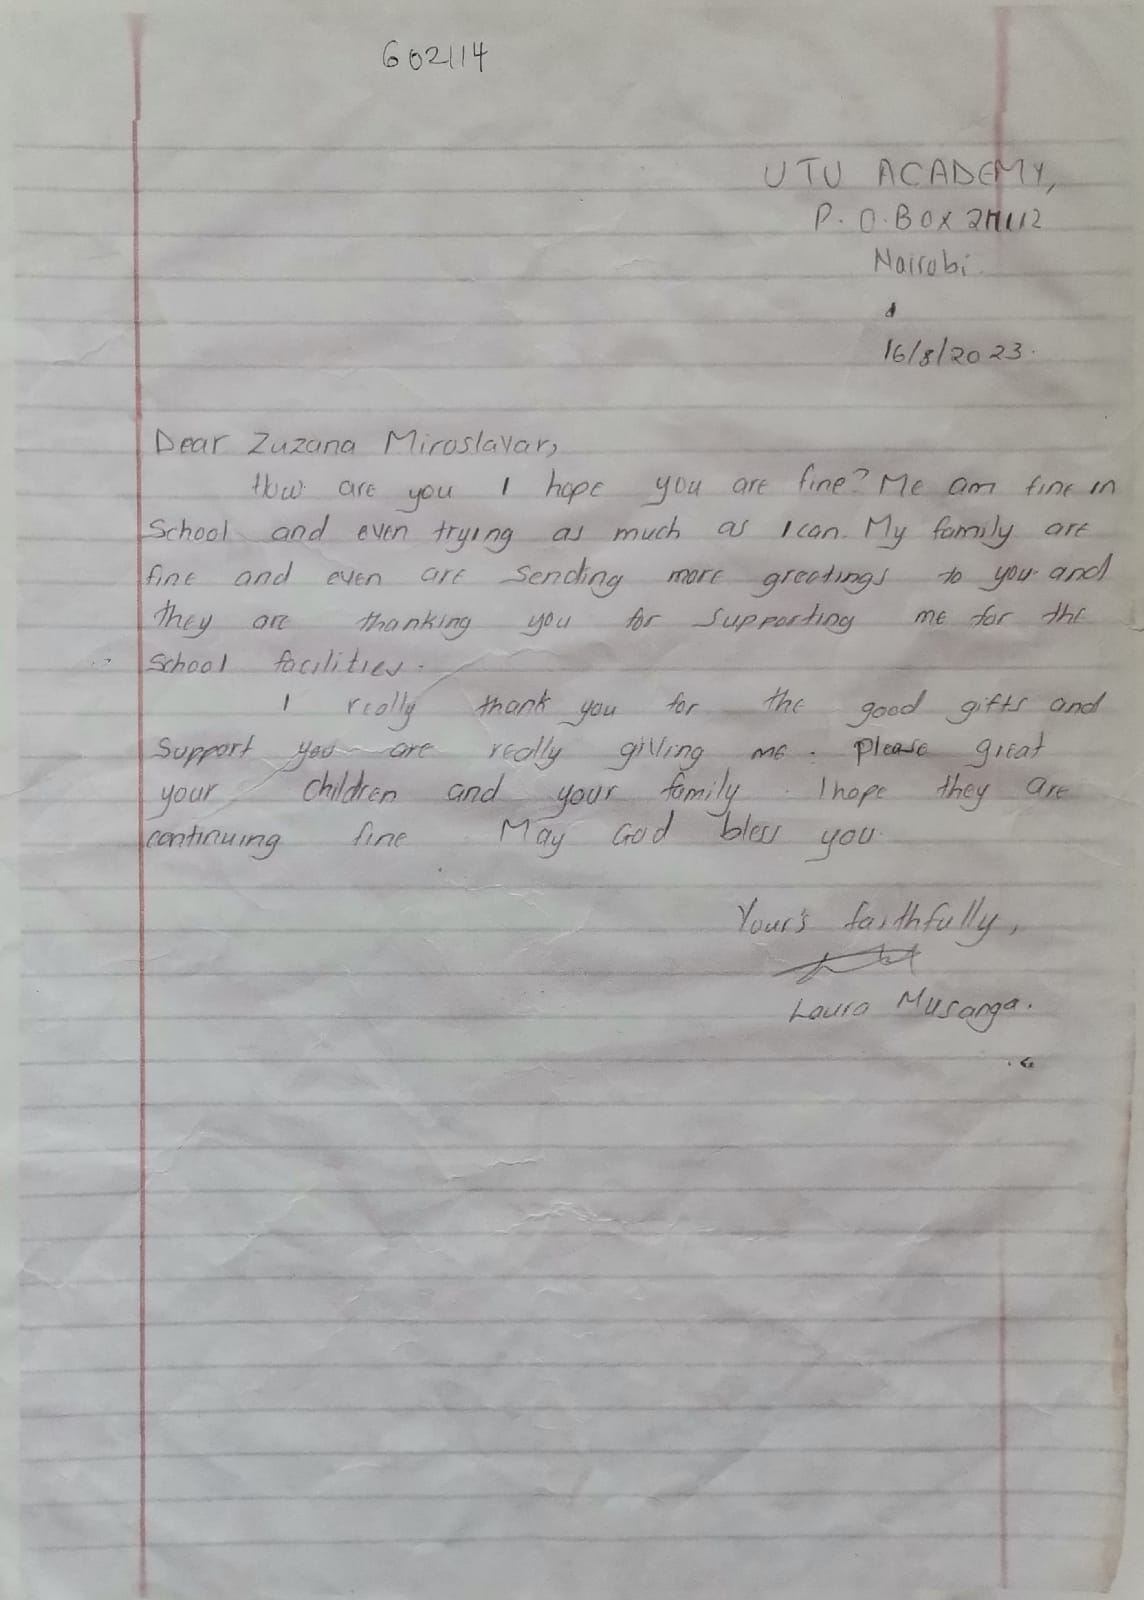 602114
UTU ACADEMY,
P. O. BOX
Nairobi.
16/8/2023.
Dear Zuzana Miroslavar,
How are you I hope you are fine? Me am fine in
School and even trying as much as I can. My family are
fine and even are sending more greetings to you and
they are thanking you for supporting me for the
School facilities.
I really thank you for the good gifts and
support you are really giving me. Please great
your children and your family. I hope they are
continuing fine. May God bless you.
Your's faithfully,
Laura Musanga.